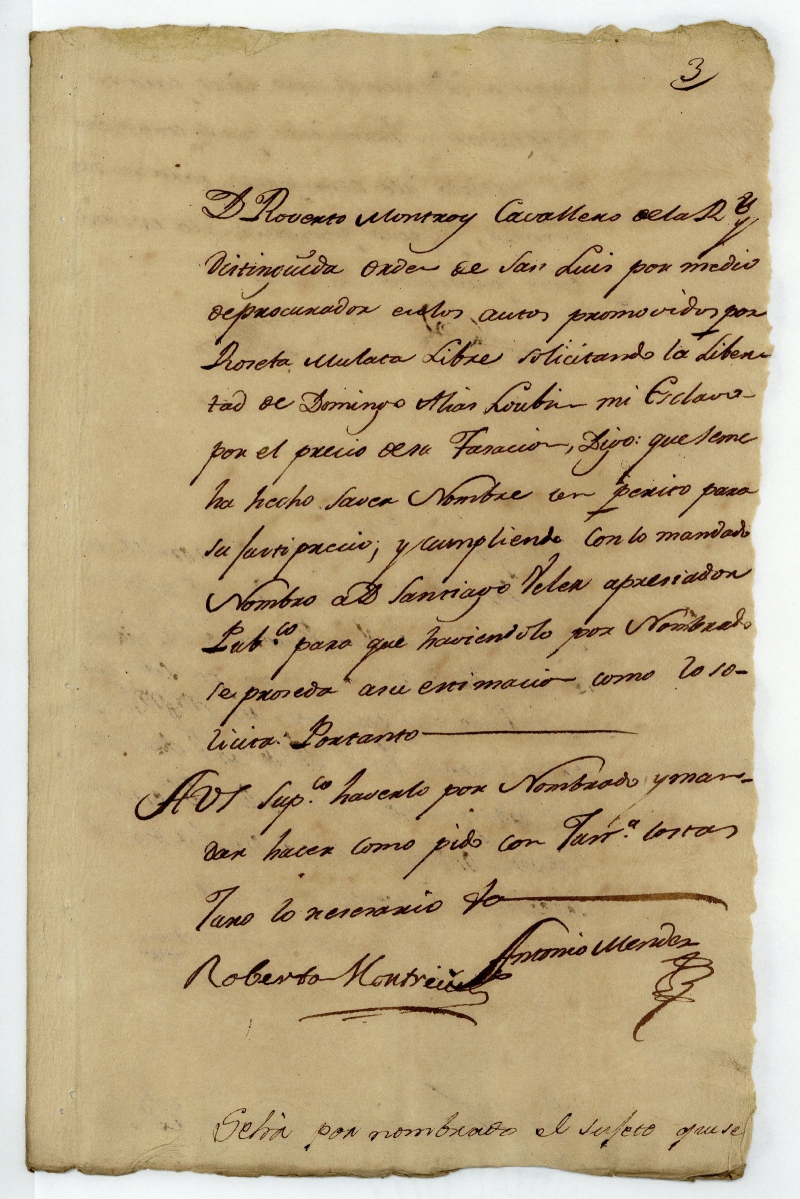 3
D Roverto Montroy Cavallero de la Rl y
Distinguida orden de San Luis por medio
de procurador en los autos promovidos por
Roseta Mulata Libre solicitando la Liber-
tad de Domingo Alias Loubin mi Esclavo
por el precio de su Tasacion, Digo: que seme
ha hecho saver Nombre un perito para
su justiprecio; y cumpliendo con lo mandado
Nombro a D Santiago Veler apresiador
Pub.co para que haviendolo por Nombrado
se proseda asu estimacion como lo so-
licita: Portanto
A V S sup.co haverlo por Nombrado y man-
dar hacer como pido con Just.a costas
Juro lo nesesario &a
Antonio Mendez
Roberto Montreuil
Se há por nombrado el sujeto que se